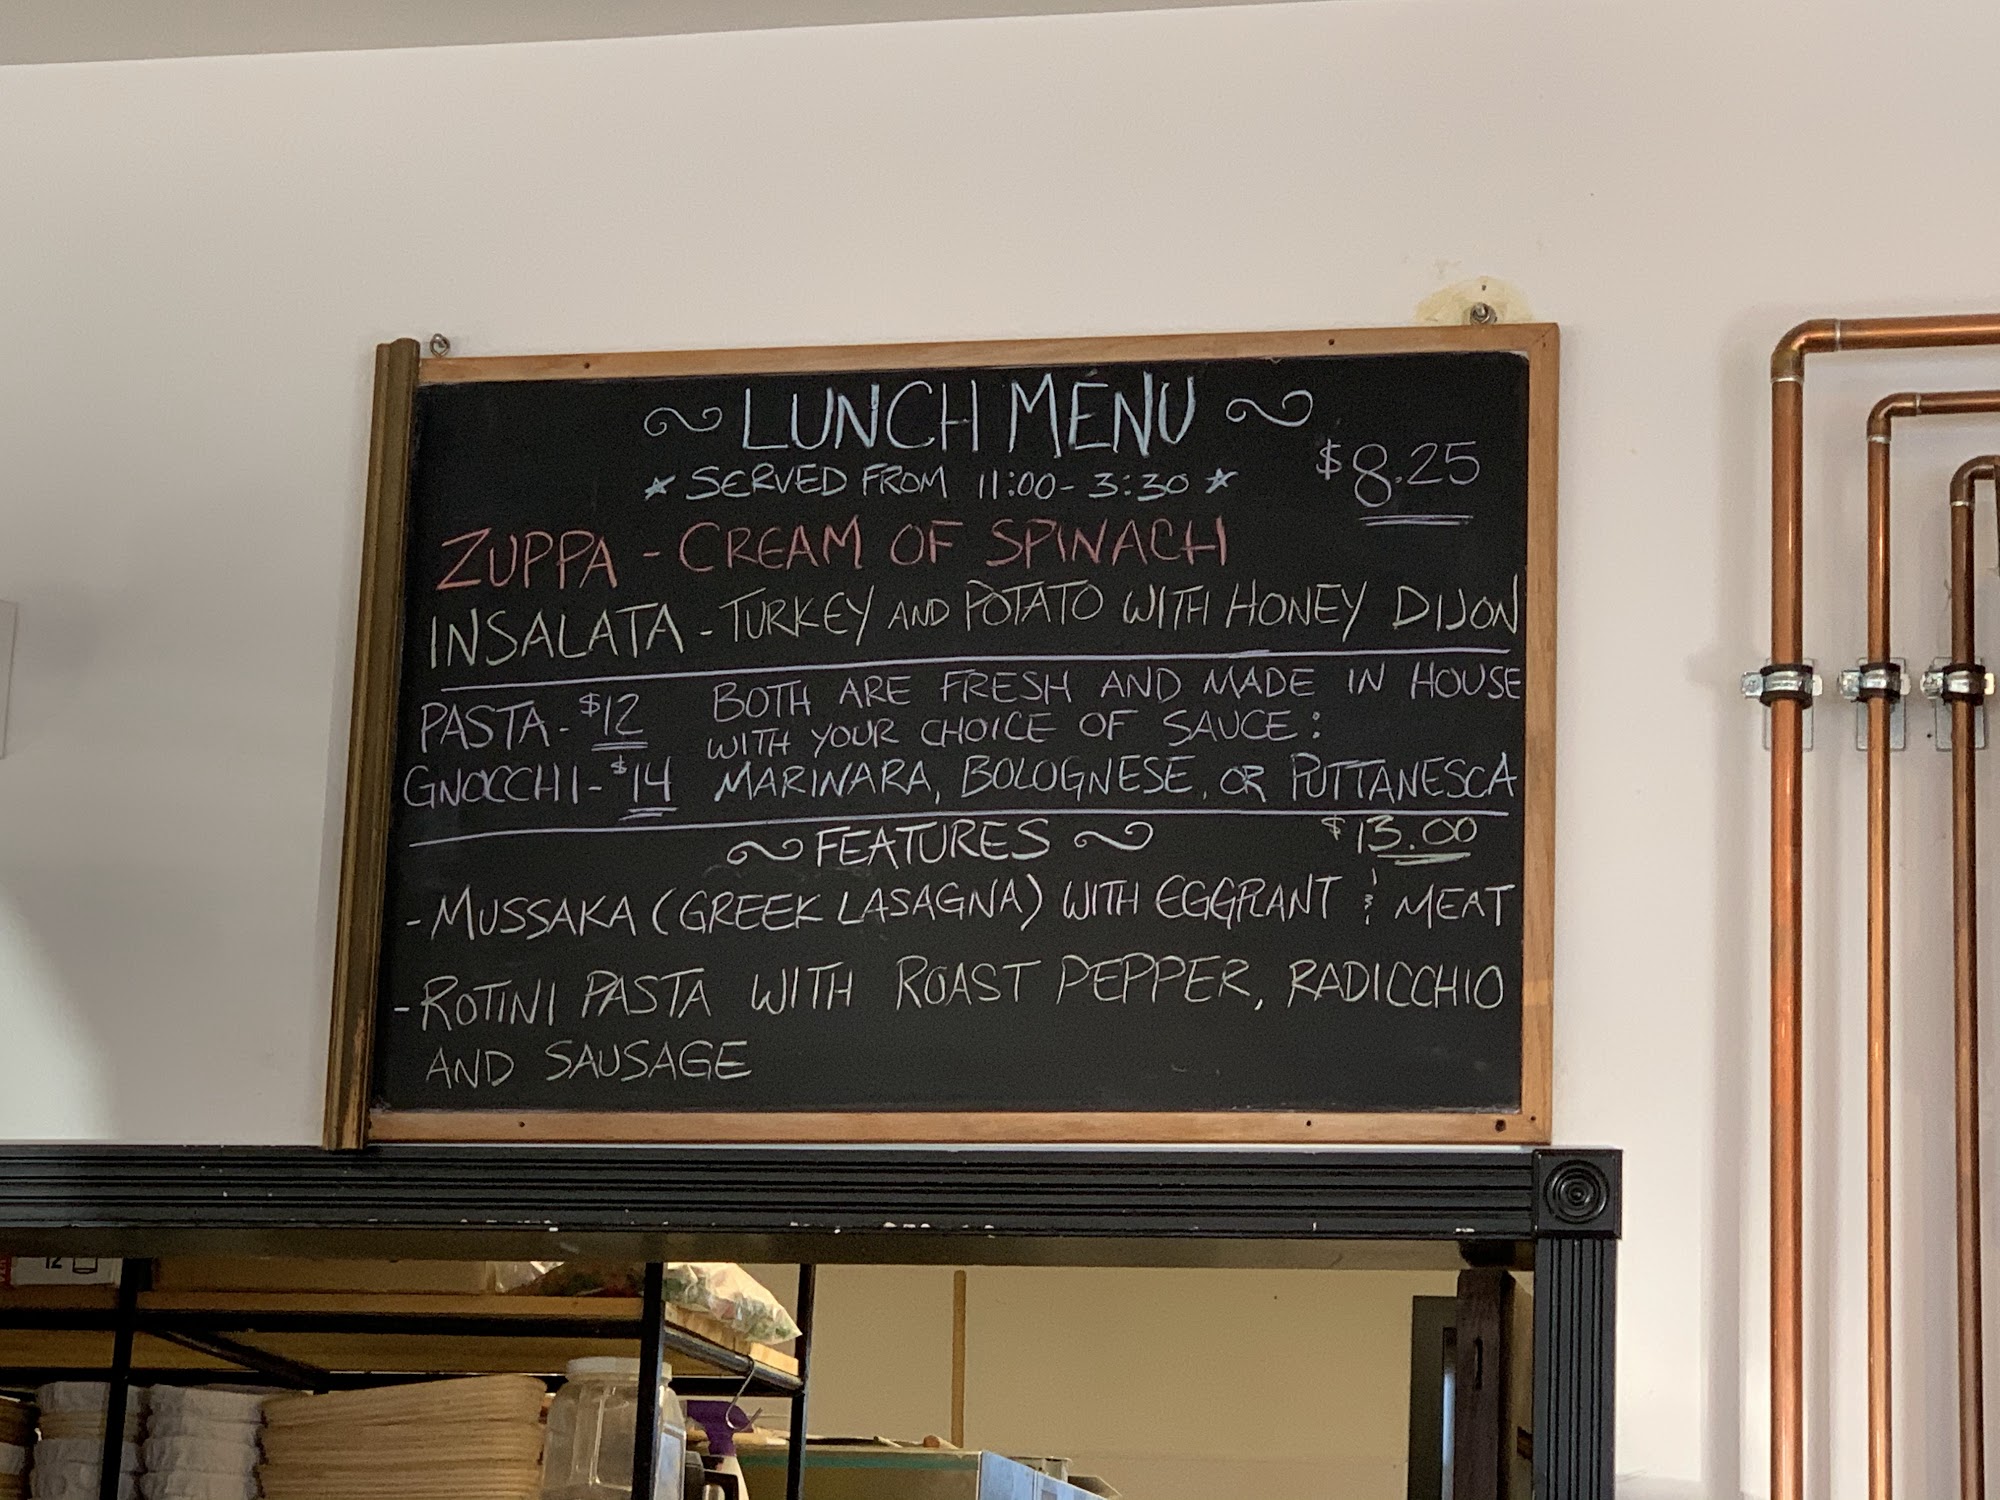 LUNCH MENU
* SERVED FROM 11:00-3:30 *
$8.25
ZUPPA - CREAM OF SPINACH
INSALATA - TURKEY AND POTATO WITH HONEY DIJON
PASTA - $12
GNOCCHI - $14
BOTH ARE FRESH AND MADE IN HOUSE
WITH YOUR CHOICE OF SAUCE:
MARINARA, BOLOGNESE, OR PUTTANESCA
FEATURES
$13.00
- MUSSAKA (GREEK LASAGNA) WITH EGGPLANT & MEAT
- ROTINI PASTA WITH ROAST PEPPER, RADICCHIO
AND SAUSAGE
12